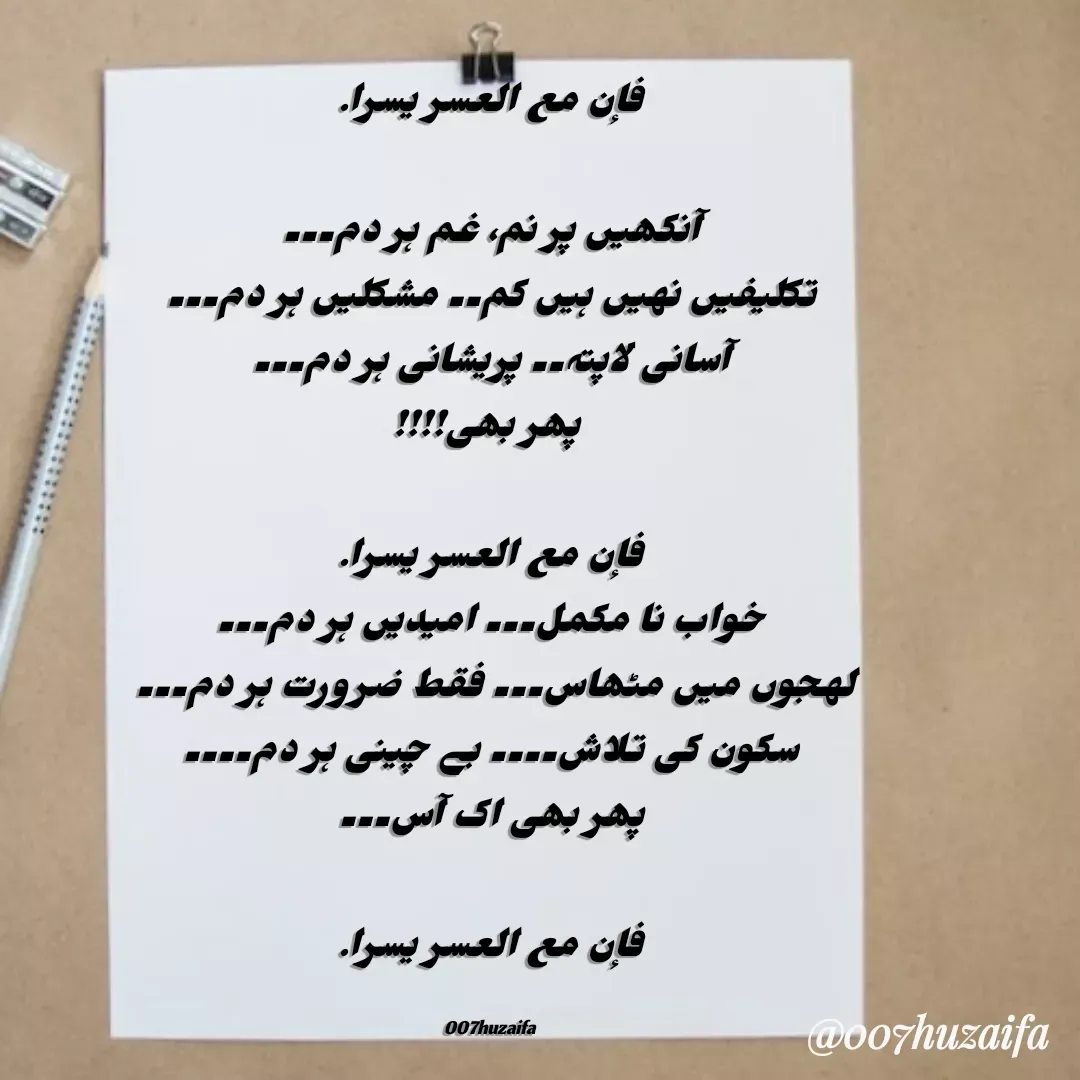 فإن مع العسر يسرا.
آنکھیں پر نم، غم ہر دم---
تکلیفیں نھیں ہیں کم-- مشکلیں ہر دم---
آسانی لاپتہ-- پریشانی ہر دم---
پھر بھی!!!!
فإن مع العسر يسرا.
خواب نا مکمل--- امیدیں ہر دم---
لھجوں میں مٹھاس--- فقط ضرورت ہر دم---
سکون کی تلاش---- بے چینی ہر دم----
پھر بھی اک آس---
فإن مع العسر يسرا.
007huzaifa
@007huzaifa